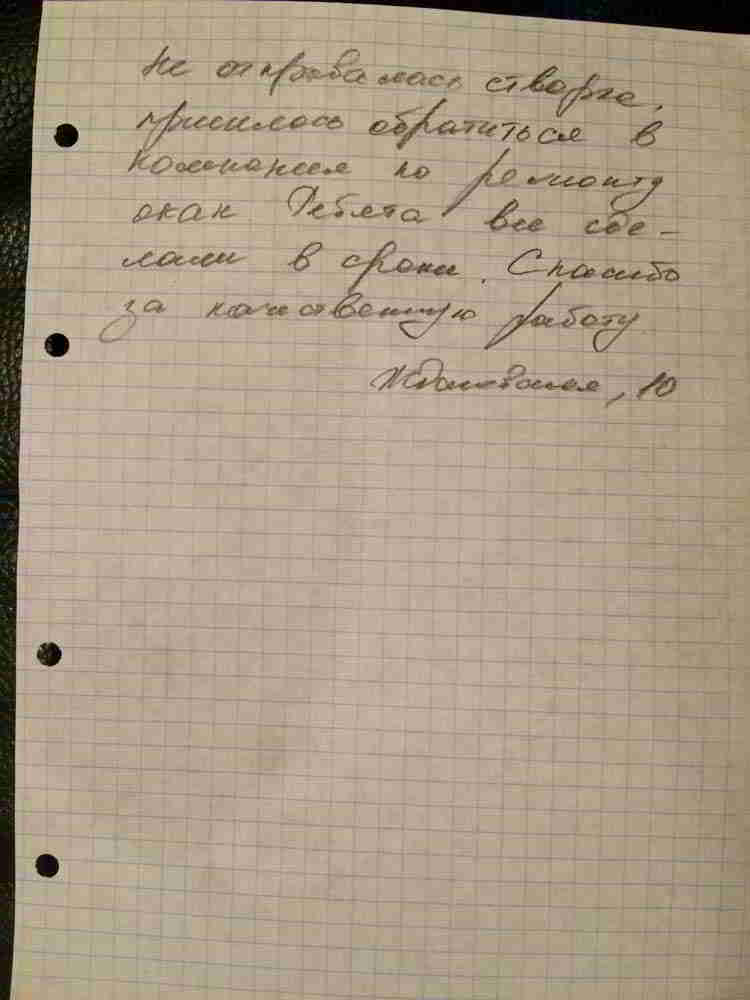 Не открывалась створка,
пришлось обратиться в
компания по ремонту
окан. Ребята все сде-
лали в сроки. Спасибо
за качественную работу
Ждановская, 10